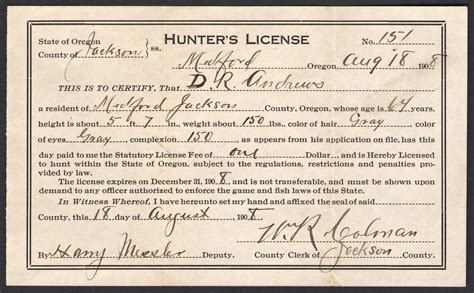 State of Oregon
County of Jackson } ss.
HUNTER'S LICENSE
No. 151
Medford Oregon, Aug 18 1908
THIS IS TO CERTIFY, That D R Andrews
a resident of Medford Jackson County, Oregon, whose age is 64 years,
height is about 5 ft 7 in., weight about 150 lbs., color of hair Gray
color of eyes, Gray, complexion 150, as appears from his application on file, has this
day paid to me the Statutory License Fee of one Dollar, and is Hereby Licensed
to hunt within the State of Oregon, subject to the regulations, restrictions and penalties
provided by law.
The license expires on December 31, 1908, and is not transferable, and must be shown upon
demand to any officer authorised to enforce the game and fish laws of this State.
In Witness Whereof, I have hereunto set my hand and affixed the seal of said
County, this 18 day of August 1908
W R Colman
By Harry Deputy. County Clerk of Jackson County.